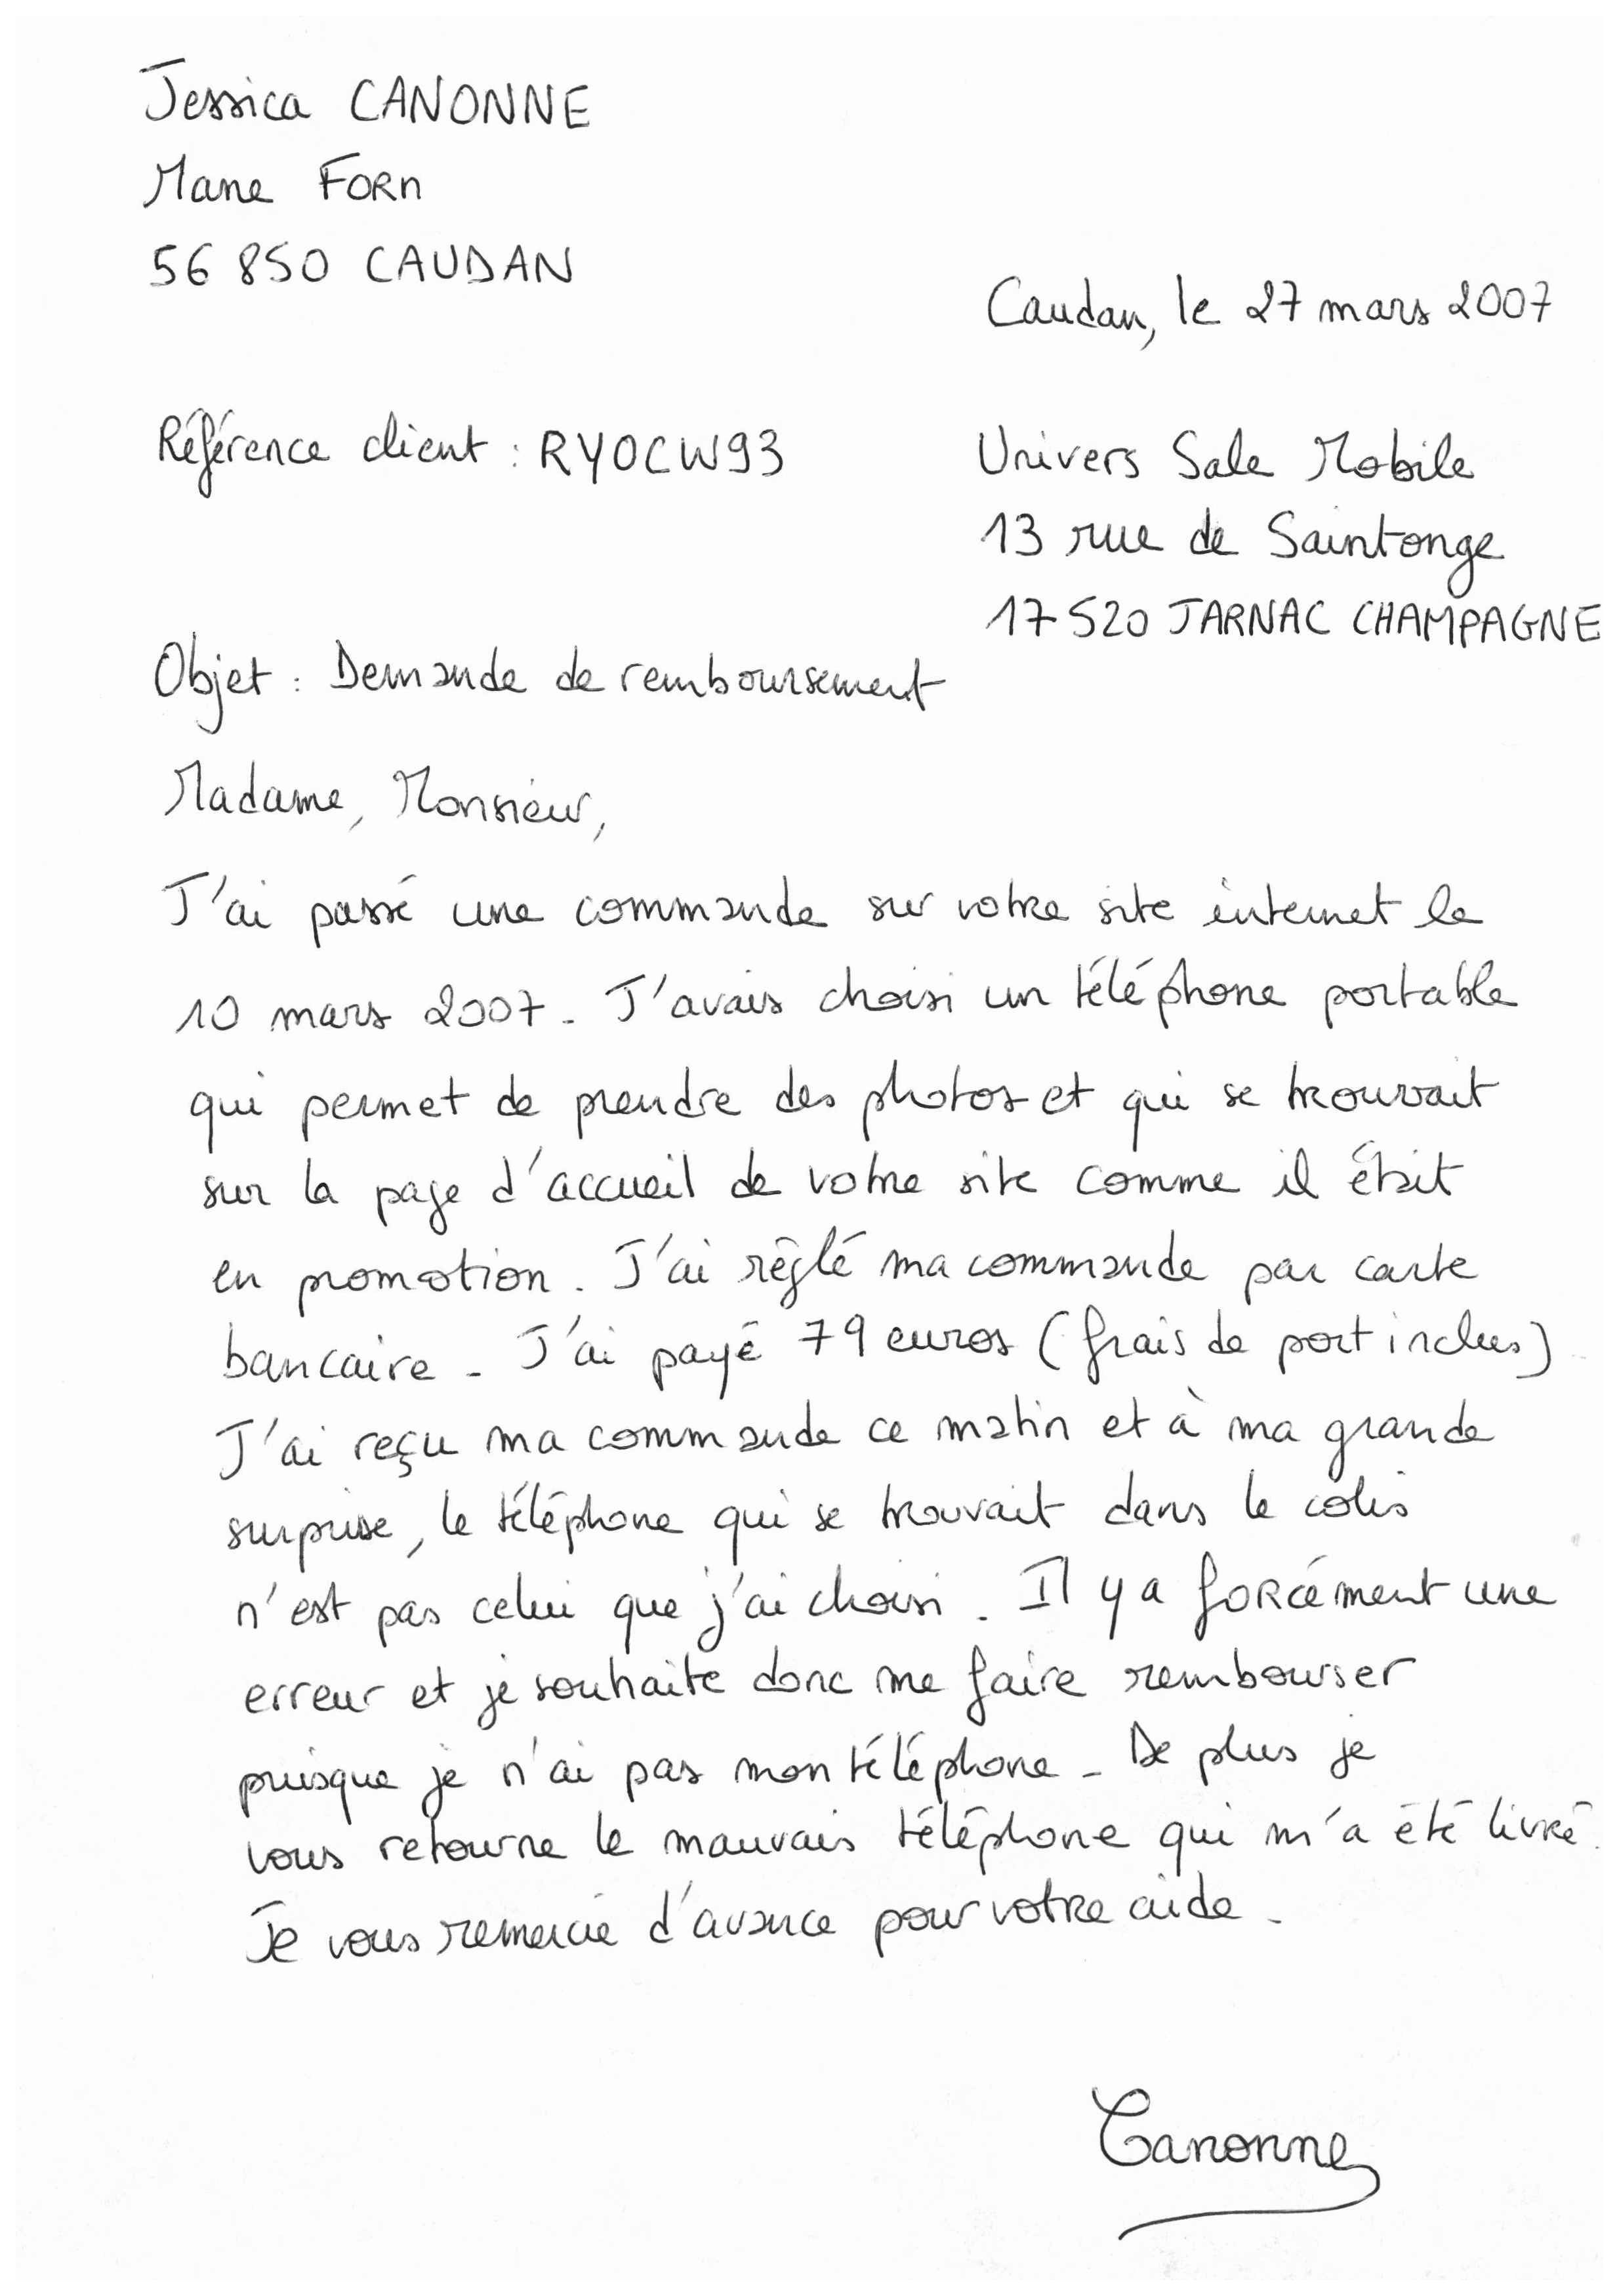 Jessica CANONNE
Mane FORN
56 850 CAUDAN
Caudan, le 27 mars 2007
Référence client : RYOCW93
Univers Sale Mobile
13 rue de Saintonge
17 520 JARNAC CHAMPAGNE
Objet : Demande de remboursement
Madame, Monsieur,
J'ai passé une commande sur votre site internet le
10 mars 2007. J'avais choisi un téléphone portable
qui permet de prendre des photos et qui se trouvait
sur la page d'accueil de votre site comme il était
en promotion. J'ai réglé ma commande par carte
bancaire. J'ai payé 79 euros (frais de port inclus)
J'ai reçu ma commande ce matin et à ma grande
surprise, le téléphone qui se trouvait dans le colis
n'est pas celui que j'ai choisi. Il y a forcément une
erreur et je souhaite donc me faire rembourser
puisque je n'ai pas mon téléphone. De plus je
vous retourne le mauvais téléphone qui m'a été livré.
Je vous remercie d'avance pour votre aide.
Canonne